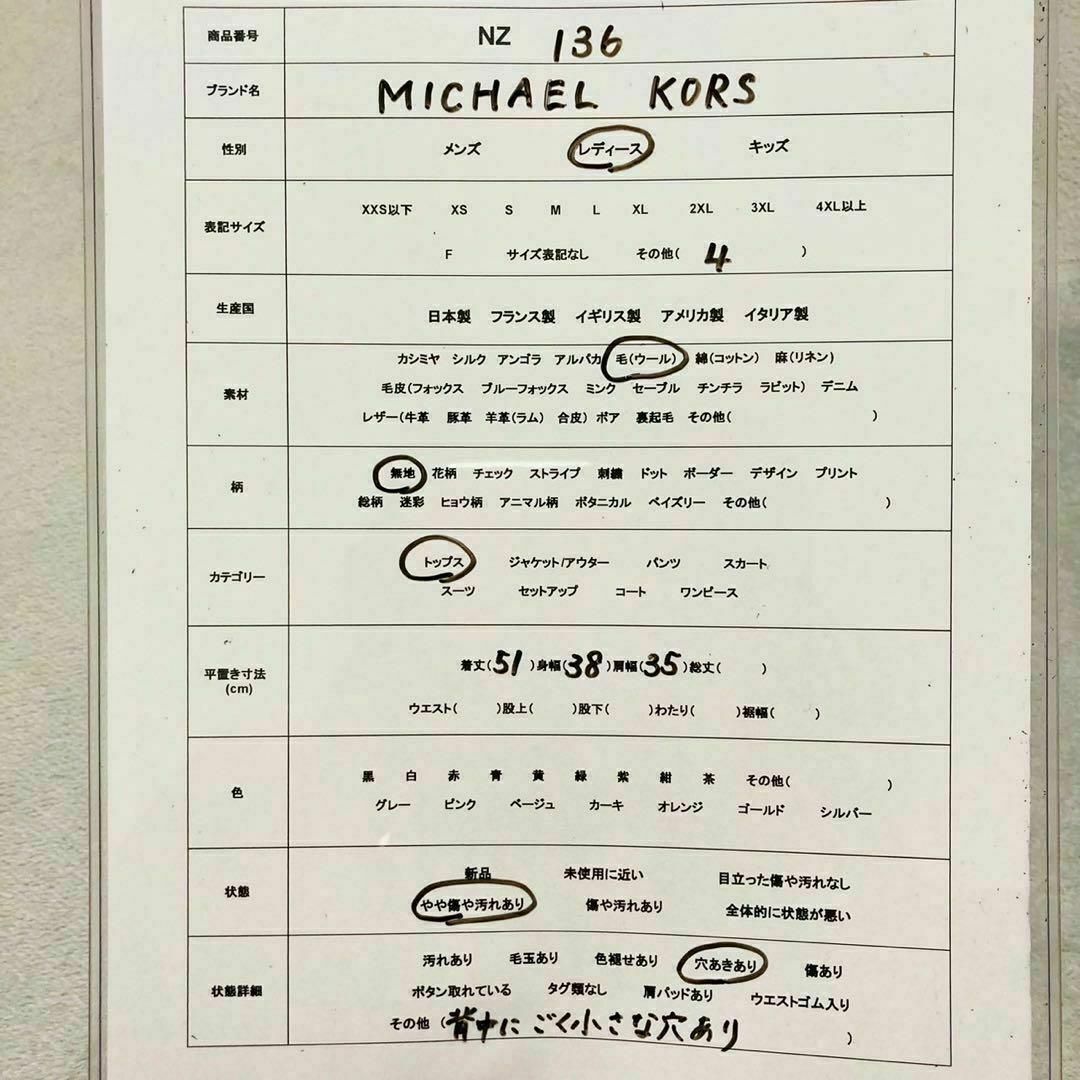 商品番号 NZ 136
ブランド名 MICHAEL KORS
性別 メンズ レディース キッズ
表記サイズ
XXS以下 XS S M L XL 2XL 3XL 4XL以上
F サイズ表記なし その他( 4 )
生産国 日本製 フランス製 イギリス製 アメリカ製 イタリア製
素材
カシミヤ シルク アンゴラ アルパカ 毛(ウール) 綿(コットン) 麻(リネン)
毛皮(フォックス ブルーフォックス ミンク セーブル チンチラ ラビット) デニム
レザー(牛革 豚革 羊革(ラム) 合皮) ボア 裏起毛 その他( )
柄
無地 花柄 チェック ストライプ 刺繍 ドット ボーダー デザイン プリント
総柄 迷彩 ヒョウ柄 アニマル柄 ボタニカル ペイズリー その他( )
カテゴリー
トップス ジャケット/アウター パンツ スカート
スーツ セットアップ コート ワンピース
平置き寸法
(cm)
着丈(51)身幅(38)肩幅(35)総丈( )
ウエスト( )股上( )股下( )わたり( )裾幅( )
色
黒 白 赤 青 黄 緑 紫 紺 茶 その他( )
グレー ピンク ベージュ カーキ オレンジ ゴールド シルバー
状態
新品 未使用に近い 目立った傷や汚れなし
やや傷や汚れあり 傷や汚れあり 全体的に状態が悪い
状態詳細
汚れあり 毛玉あり 色褪せあり 穴あきあり 傷あり
ボタン取れている タグ類なし 肩パッドあり ウエストゴム入り
その他 (背中にごく小さな穴あり )